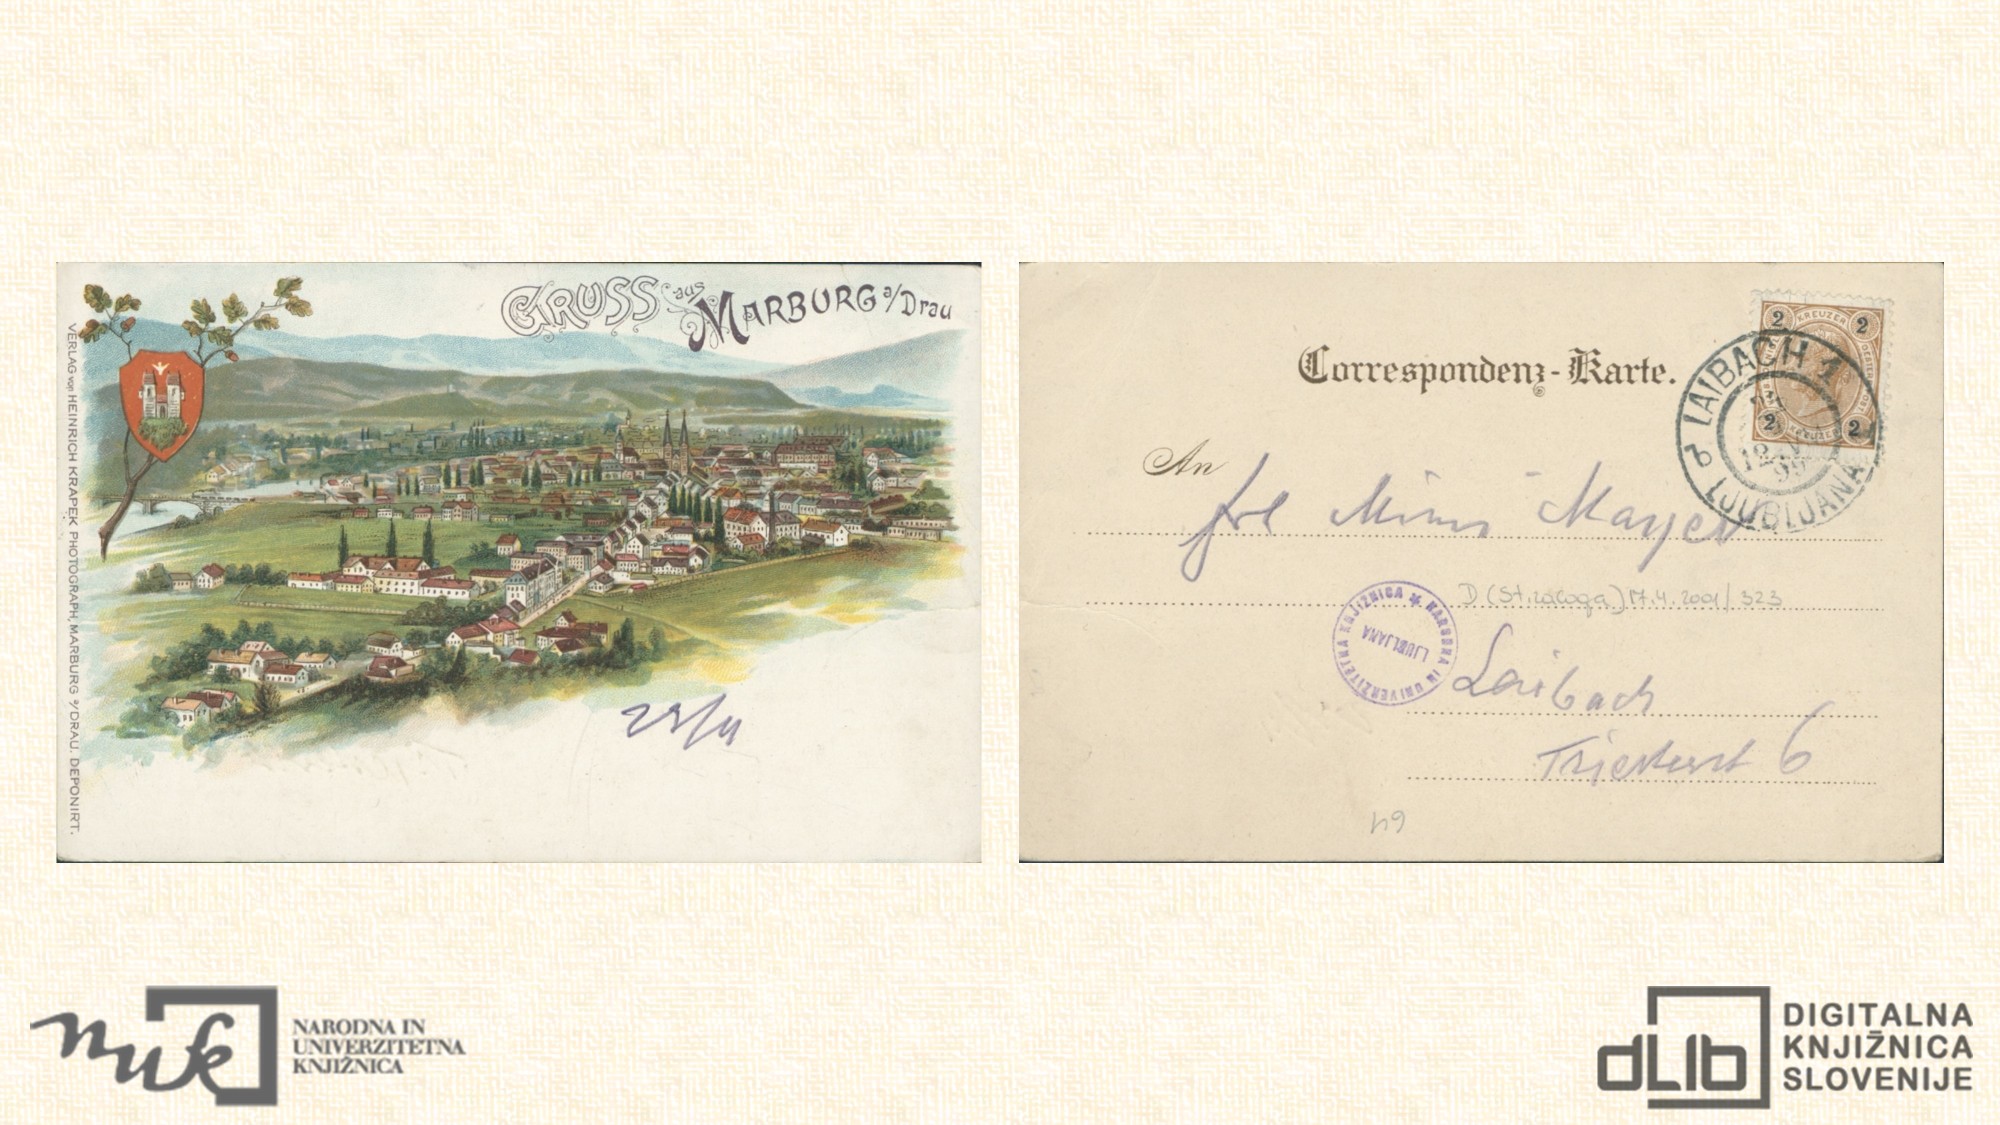 GRUSS aus MARBURG a/Drau
VERLAG von HEINRICH KRAPEK PHOTOGRAPH, MARBURG a/DRAU. DEPONIRT.
Correspondenz-Karte.
2 KREUZER 2
2 KREUZER 2
LAIBACH 1
LJUBLJANA
An
Frl Mimi Mayer
D (St. zaloga) 17.4.2001/323
NARODNA IN UNIVERZITETNA KNJIŽNICA
LJUBLJANA
Laibach
Triesterst 6
nuk
NARODNA IN
UNIVERZITETNA
KNJIŽNICA
dLib
DIGITALNA
KNJIŽNICA
SLOVENIJE